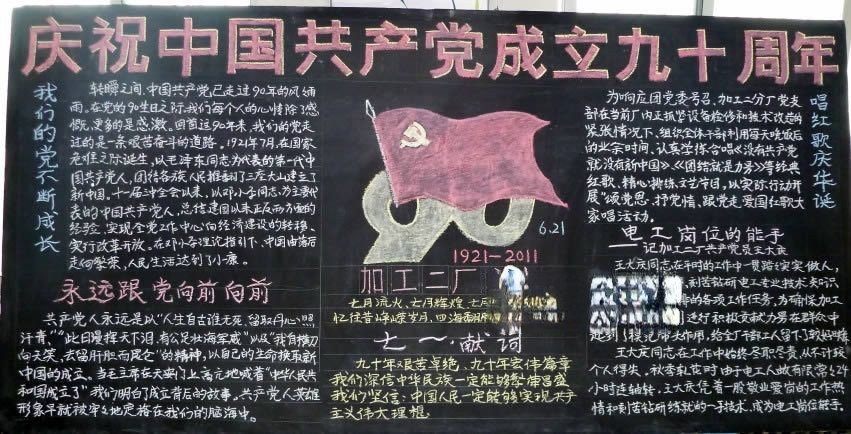 庆祝中国共产党成立九十周年
我们的党不断成长
转瞬之间,中国共产党已走过90年的风雨
雨。在党的90生日之际,我们每个人的心情除了感
慨,更多的是感激。回首这90年来,我们的党走
过的是一条艰苦奋斗的道路。1921年7月,在国家
危难之际诞生,以毛泽东同志为代表的第一代中
国共产党人,团结各族人民推翻了三座大山建立了
新中国。十一届三中全会以来,以邓小平同志为主要代
表的中国共产党人,总结建国以来正反两方面的
经验,实现全党工作中心向经济建设的转移,
实行改革开放。在邓小平理论指引下,中国由落后
走向繁荣,人民生活达到了小康。
永远跟党向前向前
共产党人永远是以“人生自古谁无死,留取丹心照
汗青”“此日漫挥天下泪,有公足壮海军威”以及“我自横刀
向天笑,去留肝胆两昆仑”的精神,以自己的生命换来新
中国的成立。当毛主席在天安门上高亢地喊着“中华人民共
和国成立了”我们明白了成立背后的故事。共产党人英雄
形象早就被牢牢地定格在我们的脑海中。
90
6.21
1921-2011
加工二厂
七月流火,七月辉煌
忆往昔峥嵘岁月,四海翻
七一献词
九十年艰苦卓绝、九十年宏伟篇章
我们深信中华民族一定能够繁荣昌盛
我们坚信:中国人民一定能够实现共产
主义伟大理想。
唱红歌庆华诞
为响应团党委号召,加工二分厂党支
部在当前厂内正抓紧设备检修和技术改造的
紧张情况下,组织全体干部利用每天晚饭后
的业余时间,认真学练合唱《没有共产党
就没有新中国》、《团结就是力量》等经典
红歌,精心排练文艺节目,以实际行动开
展“颂党恩、抒党情、跟党走爱国红歌大
家唱活动。
电工岗位的能手
—记加工二厂共产党员王大庆
王大庆同志在平时的工作中一贯踏踏实实做人,
刻苦钻研电工专业技术知识
的各项工作任务,为确保加工
进行积极贡献力量在群众中
起到了模范带头作用,给全厂干部工人留下了较好口碑
王大庆同志在工作中始终尽职尽责,从不计较
个人得失,秋季轧花时由于电工人数有限需要24
小时连轴转,王大庆凭着一股敬业爱岗的工作热
情和刻苦钻研练就的一手技术,成为电工岗位能手。